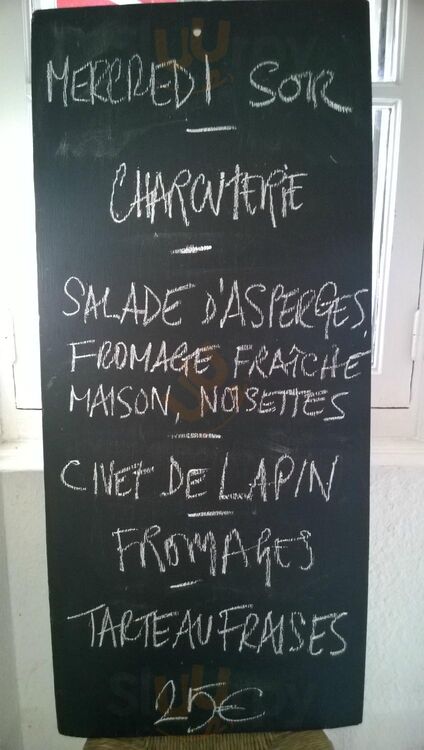 MERCREDI SOIR
CHARCUTERIE
SALADE D'ASPERGES,
FROMAGE FRAÎCHE
MAISON, NOISETTES
CIVET DE LAPIN
FROMAGES
TARTE AU FRAISES
25€